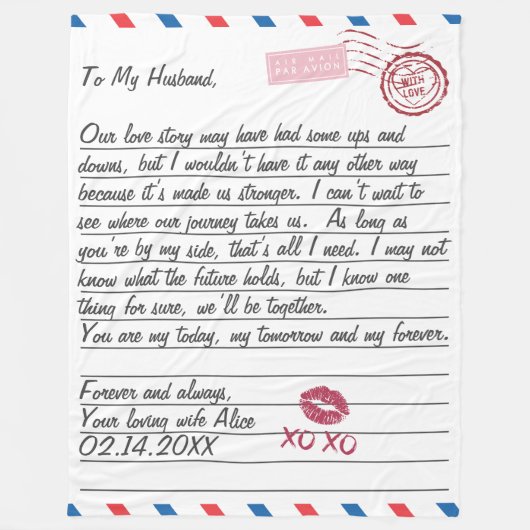 AIR MAIL
PAR AVION
WITH
LOVE
To My Husband,
Our love story may have had some ups and
downs, but I wouldn't have it any other way
because it's made us stronger. I can't wait to
see where our journey takes us. As long as
you're by my side, that's all I need. I may not
know what the future holds, but I know one
thing for sure, we'll be together.
You are my today, my tomorrow and my forever.
Forever and always,
Your loving wife Alice
02.14.20XX
XO XO